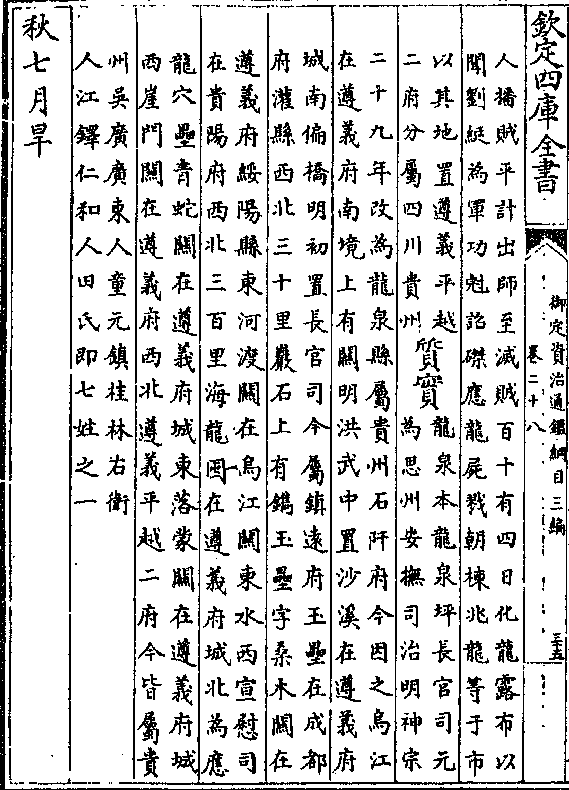 欽定四庫全書
御定資治通鑑綱目三編
卷二十八
三五
人播賊平計出師至滅賊百十有四日化龍露布以
聞劉綎為軍功魁詔磔應龍屍戮朝棟兆龍等于市
以其地置遵義平越
二府分屬四川貴州
質實
龍泉本龍泉坪長官司元
為思州安撫司治明神宗
二十九年改為龍泉縣屬貴州石阡府今因之烏江
在遵義府南境上有關明洪武中置沙溪在遵義府
城南偏橋明初置長官司今屬鎮遠府玉壘在成都
府灌縣西北三十里巖石上有鐫玉壘字桑木關在
遵義府綏陽縣東河渡關在烏江關東水西宣慰司
在貴陽府西北三百里海龍囤在遵義府城北為應
龍穴壘青蛇關在遵義府城東落蒙關在遵義府城
西崖門關在遵義府西北遵義平越二府今皆屬貴
州吳廣廣東人童元鎮桂林右衛
人江鐸仁和人田氏即七姓之一
秋七月旱